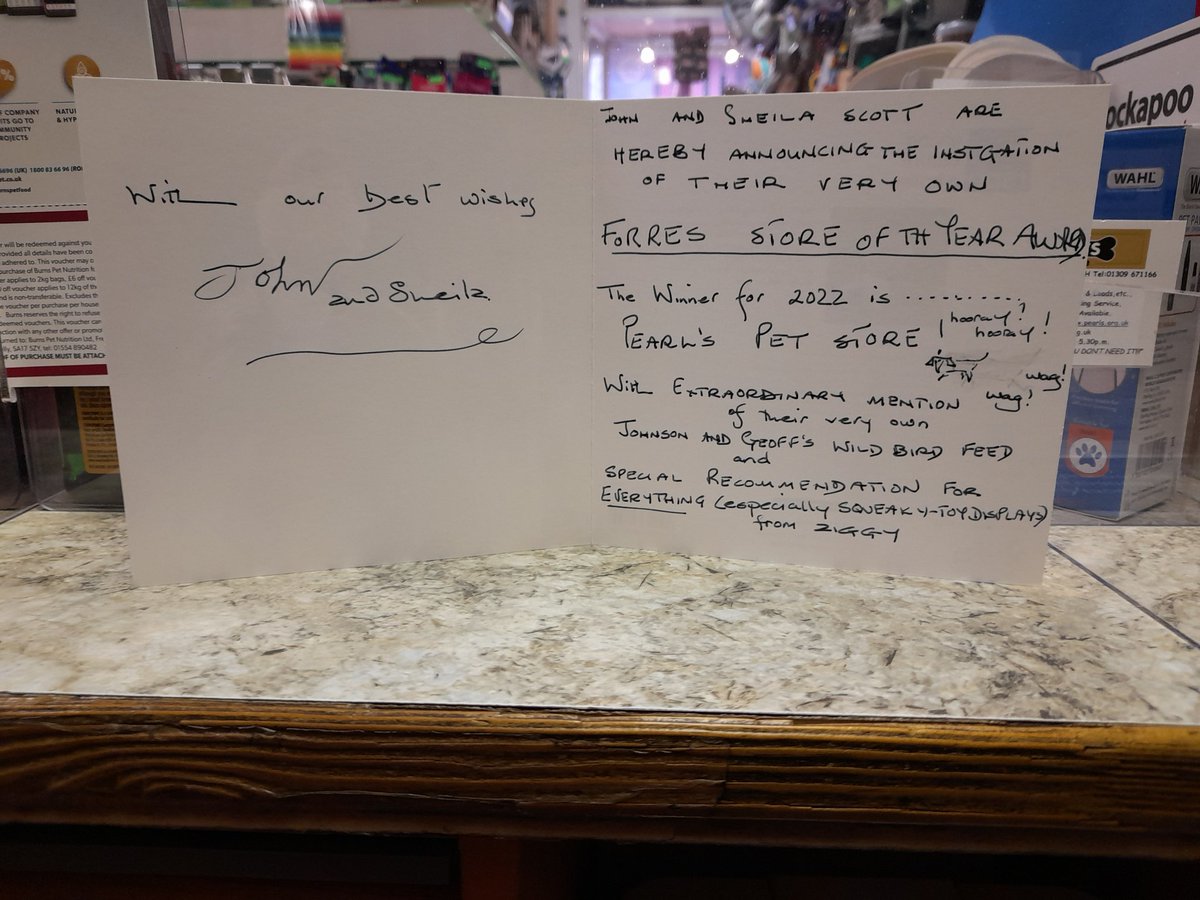 With our best wishes
John
and Sheila
JOHN AND SHEILA SCOTT ARE
HEREBY ANNOUNCING THE INSTGATION
OF THEIR VERY OWN
FORRES STORE OF TH YEAR AWARD
The Winner for 2022 is ..........
PEARL'S PET STORE ! hooray!
hooray!
wag!
With EXTRAORDINARY MENTION wag!
of their very own
JOHNSON AND GEOFF'S WILD BIRD FEED
and
SPECIAL RECOMMENDATION FOR
EVERYTHING (especially SQUEAKY-TOY DISPLAYS)
from ZIGGY
%
COMPANY
ITS GO TO
MMUNITY
ROJECTS
NATU
& HYP
6696 (UK) 1800 83 66 96 (ROI
et.co.uk
rnspetfood
r will be redeemed against you
rovided all details have been co
adhered to. This voucher may o
purchase of Burns Pet Nutrition fo
er applies to 2kg bags, £6 off vou
off voucher applies to 12kg of th
nd is non-transferable. Excludes th
e voucher per purchase per house
Burns reserves the right to refuse
deemed vouchers. This voucher can
ction with any other offer or promo
urned to: Burns Pet Nutrition Ltd, Fre
lly, SA17 5ZY, tel: 01554 890482
OF OF PURCHASE MUST BE ATTACH
ockapoo
WAHL
S
H Tel:01309 671166
& Leads,etc..
ing Service,
Available.
e.pearls.org.uk
g.uk
5.30p.m.
U DON'T NEED IT!!"